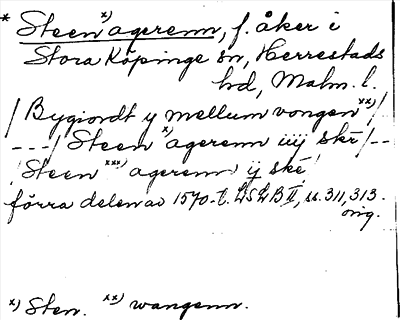 * Steen x) agerenn, f. åker i
Stora Köpinge sn, Herrestads
hd, Malm. l.
/ Bygiordt y mellum vongen xx) /
---/ Steen x) agerenn iiij skr /--
/ Steen xxx) agerenn ij ske /
förra delen av 1570-t. LSLB II, ss. 311, 313.
orig.
x) Sten. xx) wangenn.